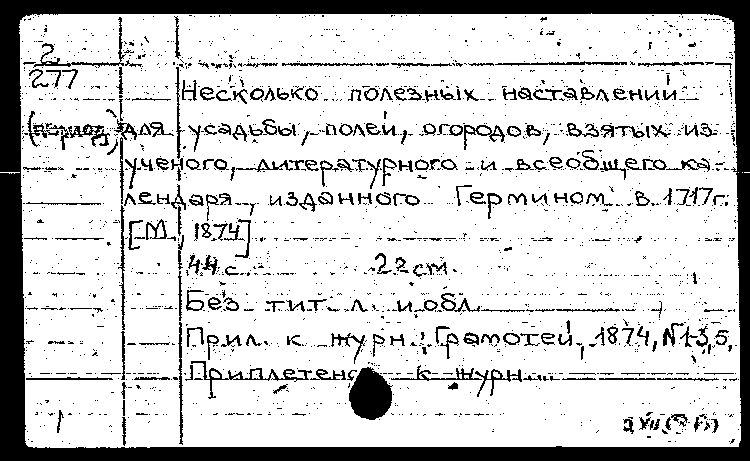 2
277
Несколько полезных наставлений
(период) для усадьбы, полей, огородов, взятых из
ученого, литературного и всеобщего ка-
лендаря, изданного Гермином в 1717г.
[М., 1874]
44 с. 22 см.
Без тит. л. и обл.
Прил. к журн.: Грамотей, 1874, №1-3,5.
Приплетено к журн....
1